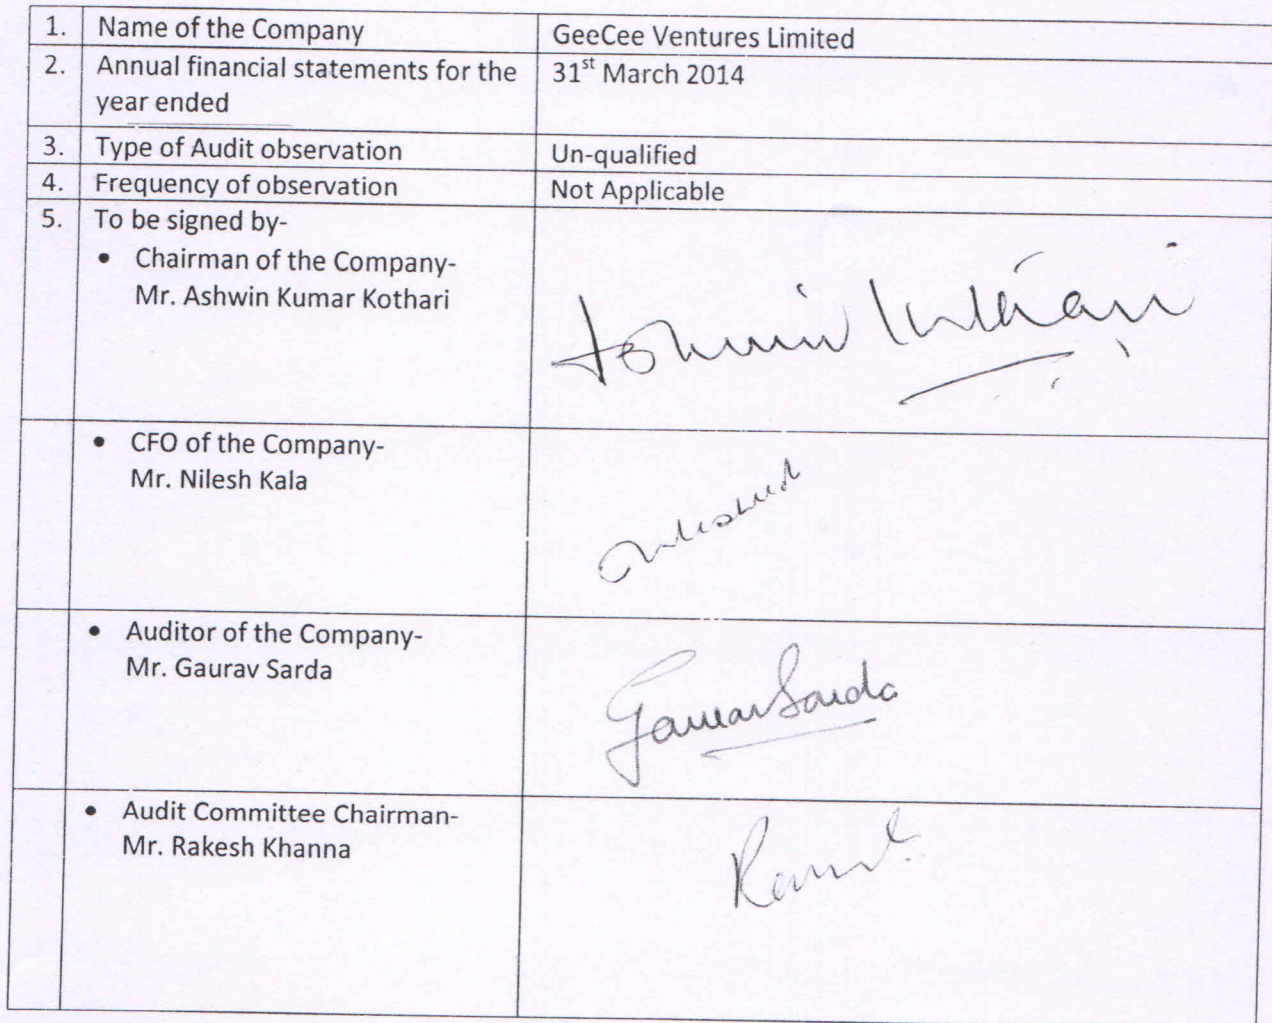 1. Name of the Company GeeCee Ventures Limited
2. Annual financial statements for the 31st March 2014
year ended
3. Type of Audit observation Un-qualified
4. Frequency of observation Not Applicable
5. To be signed by-
• Chairman of the Company-
Mr. Ashwin Kumar Kothari
Ashwin Kothari
• CFO of the Company-
Mr. Nilesh Kala
• Auditor of the Company-
Mr. Gaurav Sarda
Gaurav Sarda
• Audit Committee Chairman-
Mr. Rakesh Khanna